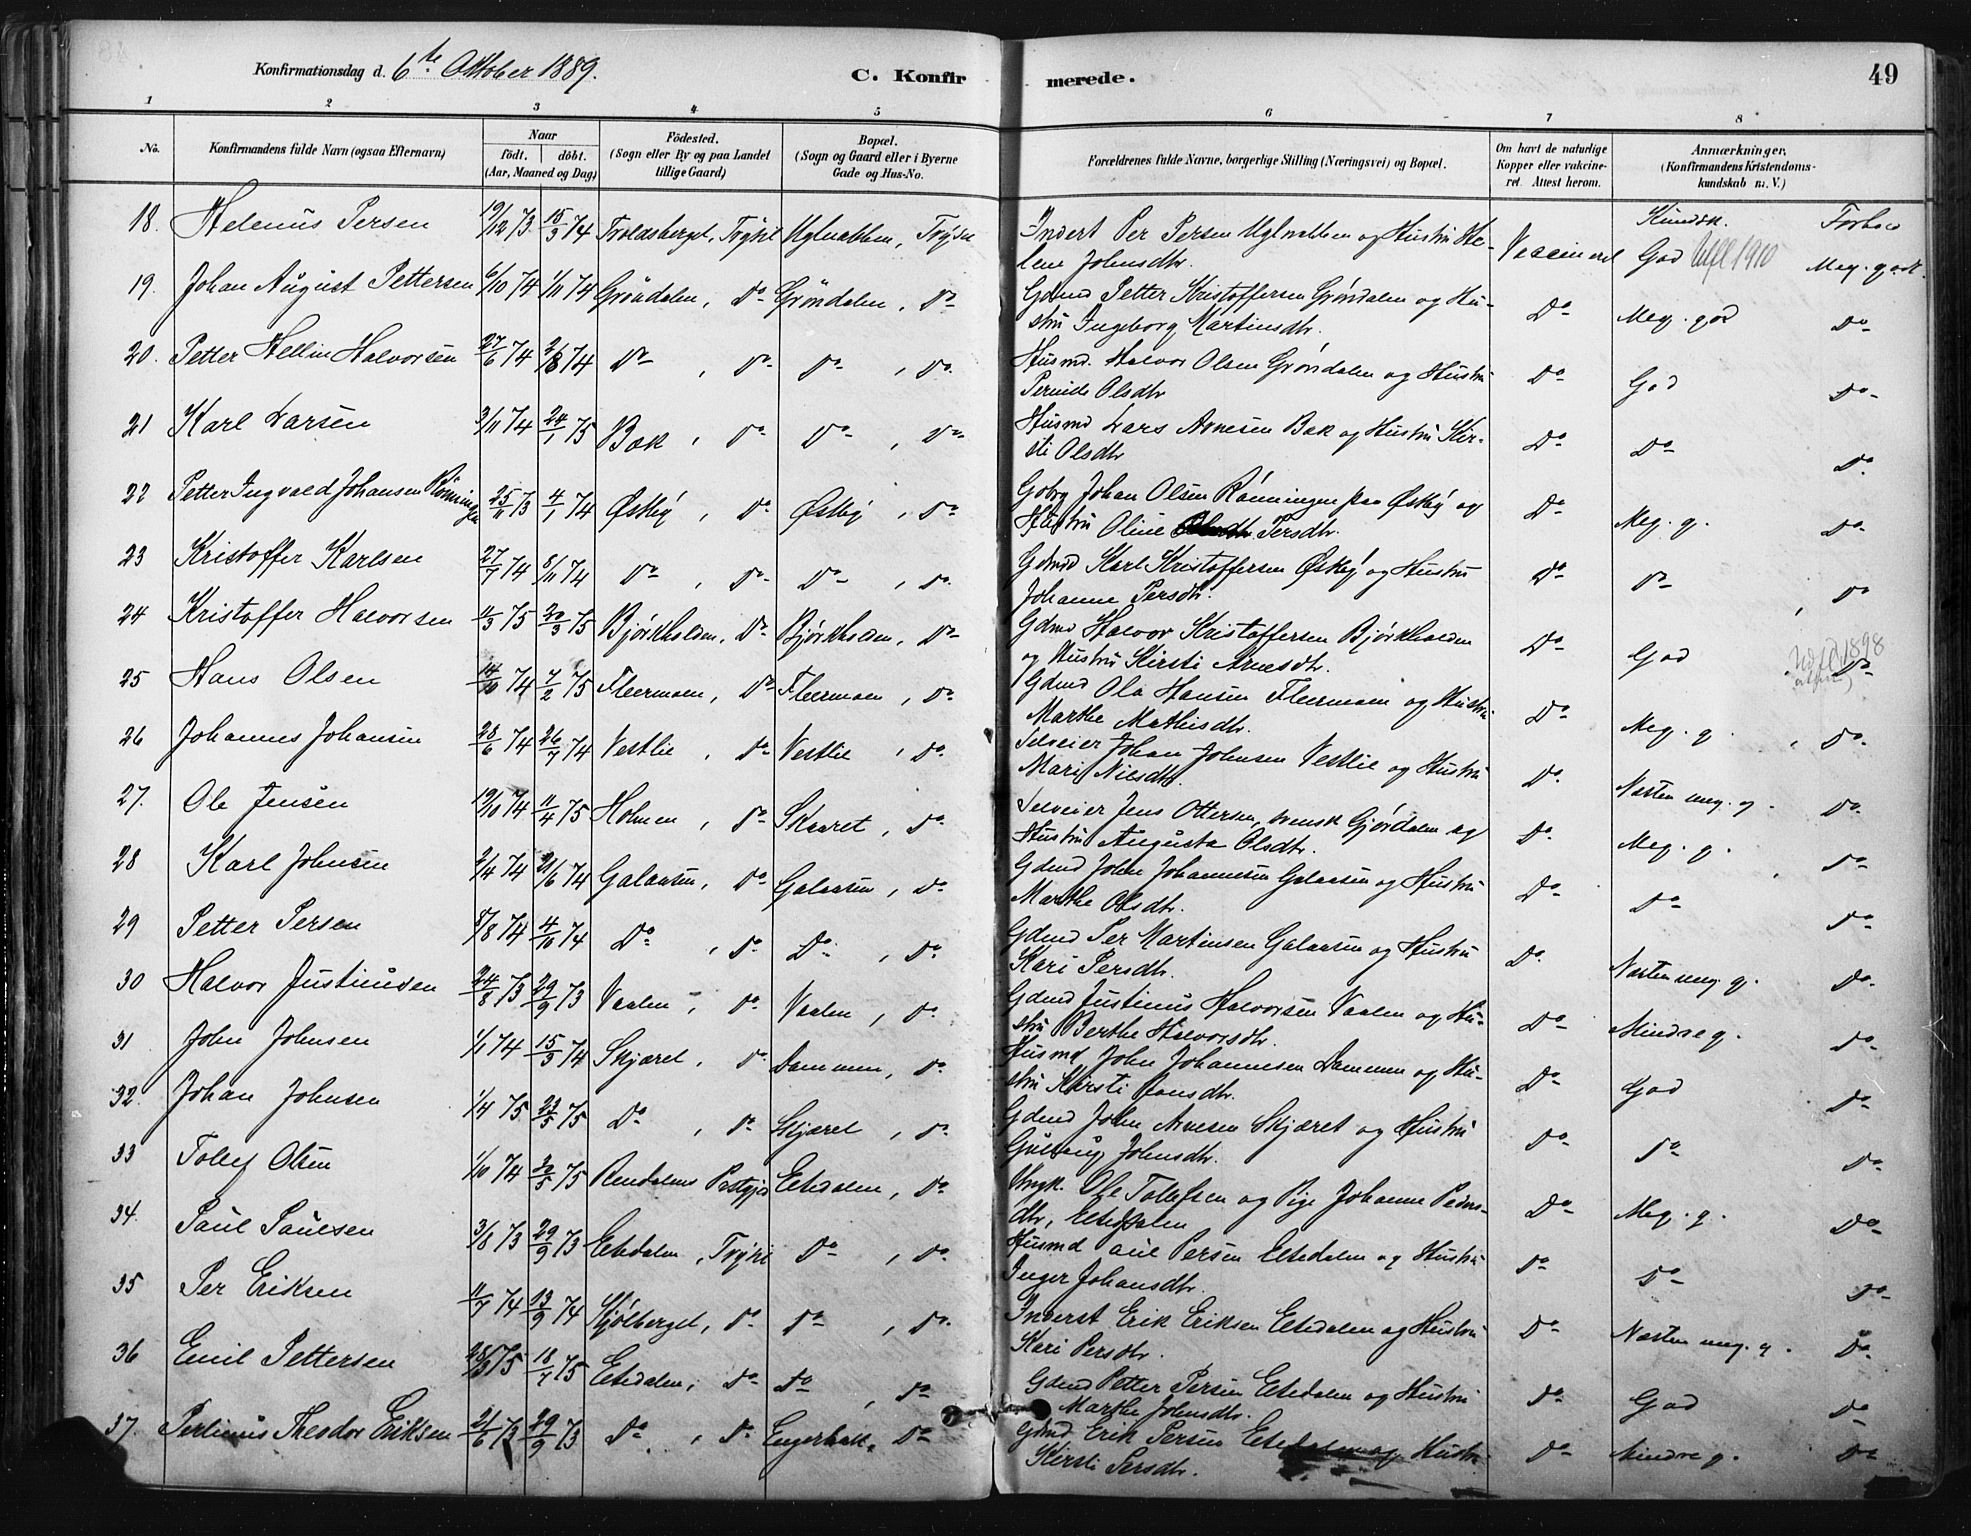 Konfirmationsdag d. 6te Oktober 1889.
C. Konfirmerede.
49
1 2 3 4 5 6 7 8
No.
Konfirmandens fulde Navn (ogsaa Efternavn)
Naar
født. | døbt.
(Aar, Maaned og Dag)
Födested.
(Sogn eller By og paa Landet
tillige Gaard)
Bopæl.
(Sogn og Gaard eller i Byerne
Gade og Hus-No.
Forældrenes fulde Navne, borgerlige Stilling (Næringsvei) og Bopæl.
Om havt de naturlige
Kopper eller vakcine-
ret. Attest herom.
Anmærkninger,
(Konfirmandens Kristendoms-
kundskab m. V.)
Kundsk. Forhold
18. Helenus Persen 19/12 73 15/3 74 Troldsberget, Trysil Uglnabben, Trysil Inderst Per Persen Uglnabben og Hustru He-
lene Johnsdtr. Vaccineret God Utfl 1910 Meg. godt.
19. Johan August Pettersen 6/10 74 1/11 74 Grøndalen, Do Grøndalen, Do Gdmd Petter Kristoffersen Grøndalen og Hu-
stru Ingeborg Martinsdtr. Do Meg. god Do
20. Petter Hellin Halvorsen 27/6 74 2/8 74 Do, Do Do, Do Husmd. Halvor Olsen Grøndalen og Hustru
Pernille Olsdtr Do God Do
21 Karl Larsen 3/11 74 24/1 75 Bak, Do Do, Do Husmd Lars Arnesen Bak og Hustru Kir-
sti Olsdtr Do Do Do
22 Petter Ingvald Johansen Rønningen 25/11 73 4/1 74 Østby, Do Østby, Do Gdbrg Johan Olsen Rønningen paa Østby og
Hustru Oline Persdtr. Do Meg. g. Do
23 Kristoffer Karlsen 27/7 74 8/11 74 Do, Do Do, Do Gdmd Karl Kristoffersen Østby og Hustru
Johanne Persdtr. Do Do Do
24 Kristoffer Halvorsen 4/3 75 30/3 75 Bjørkholden, Do Bjørkholden, Do Gdmd Halvor Kristoffersen Bjørkholden
og Hustru Kirsti Arnesdtr. Do God Do
25 Hans Olsen 14/10 74 7/2 75 Fleermoen, Do Fleermoen, Do Gdmd Ola Hansen Fleermoen og Hustru
Marthe Mathisdtr. Do Meg. g. Do
Udfl 1898
26 Johannes Johansen 28/6 74 26/7 74 Vestlie, Do Vestlie, Do Selveier Johan Johnsen Vestlie og Hustru
Mari Nilsdtr. Do Næsten meg. g. Do
27. Ole Jensen 19/10 74 11/4 75 Holmen, Do Skaaret, Do Selveier Jens Ottersen, svensk Gjørdalen og
Hustru Augusta Olsdtr. Do Meg. g. Do
28 Karl Johnsen 2/4 74 21/6 74 Galaasen, Do Galaasen, Do Gdmd John Johannesen Galaasen og Hustru
Marthe Olsdtr. Do Do Do
29 Petter Persen 8/8 74 4/10 74 Do, Do Do, Do Gdmd Per Martinsen Galaasen og Hustru
Kari Persdtr. Do Næsten meg. g. Do
30 Halvor Justinusen 24/8 73 29/9 73 Vaalen, Do Vaalen, Do Gdmd Justinus Halvorsen Vaalen og Hu-
stru Berthe Halvorsdtr. Do Mindre g. Do
31 John Johnsen 1/1 74 15/3 74 Skjæret, Do Dammen, Do Husmd John Johannesen Dammen og Hu-
stru Kirsti Jonsdtr. Do God Do
32 Johan Johnsen 1/4 75 23/5 75 Do, Do Skjæret, Do Gdmd John Arnesen Skjæret og Hustru
Gulaug Johnsdtr. Do Do Do
33 Tollef Olsen 1/10 74 30/5 75 Rendalens Prstgjd Eltedalen, Do Ungk. Ole Tollefsen og Pige Johanne Peders-
dtr, Eltedalen Do Meg. g. Do
34. Paul Paulsen 3/8 73 29/9 73 Eltedalen, Trysil Do, Do Husmd Paul Persen Eltedalen og Hustru
Inger Johansdtr. Do Do Do
35 Per Eriksen 11/7 74 13/9 74 Kjølberget, Do Do, Do Inderst Erik Eriksen Eltedalen og Hustru
Kari Persdtr. Do Næsten meg. g. Do
36 Emil Pettersen 28/3 75 18/7 75 Eltedalen, Do Do, Do Gdmd Petter Persen Eltedalen og Hustru
Marthe Johnsdtr. Do God Do
37. Perlinus Theodor Eriksen 21/6 73 29/9 73 Do, Do Engerbak. Do Gdmd Erik Persen Eltedalen og Hustru
Kirsti Persdtr. Do Mindre g. Do